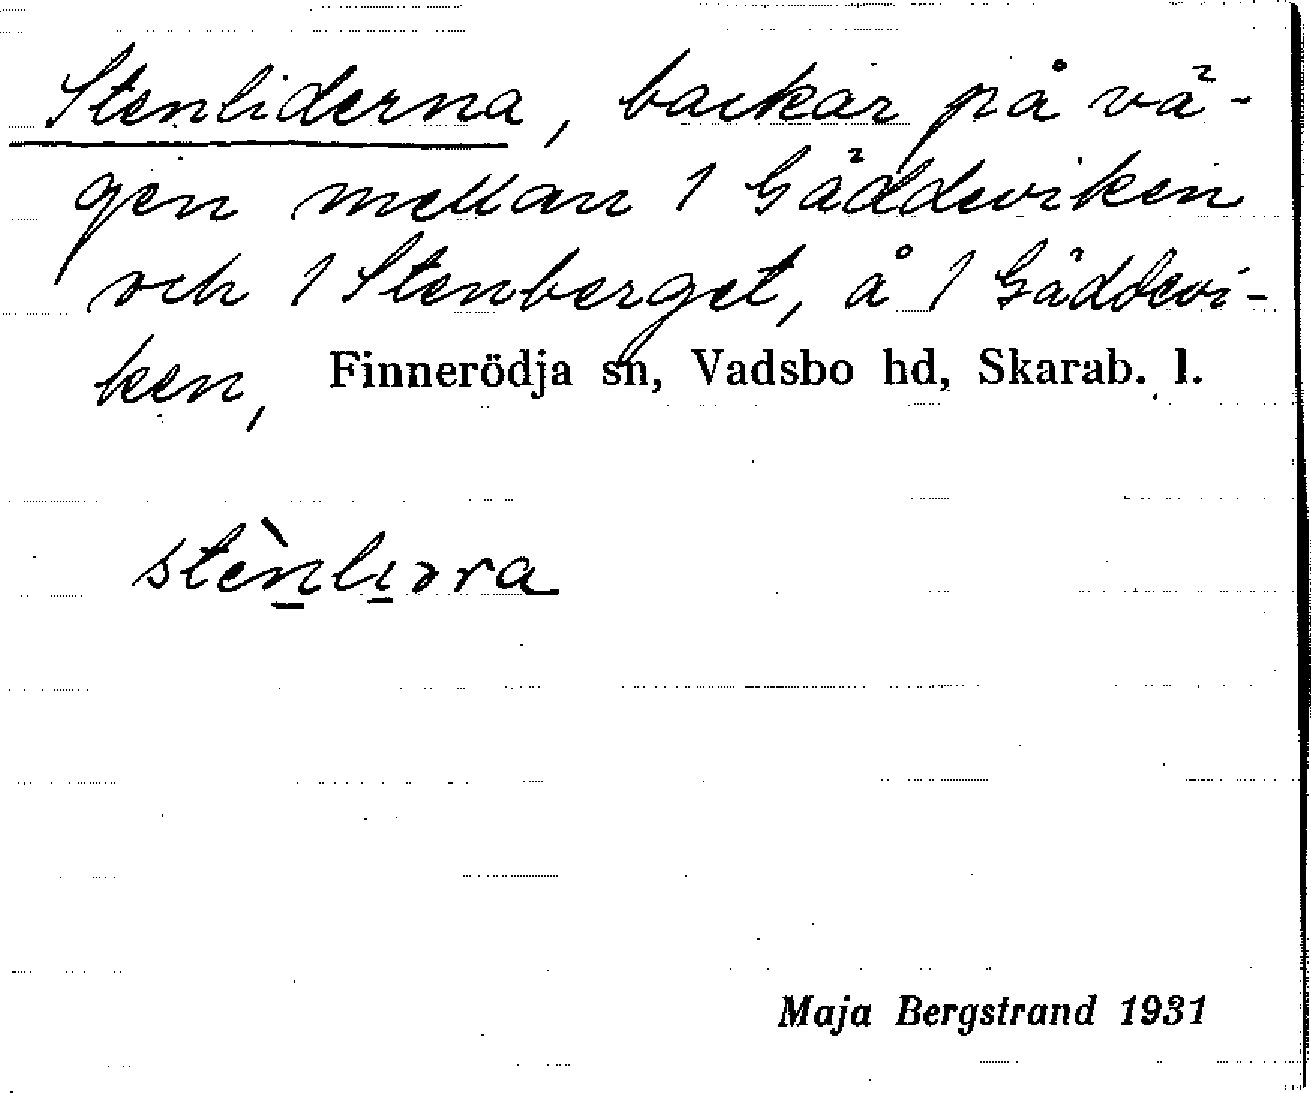 Stenliderna, backar på vä-
gen mellan 1 Gäddeviken
och 1 Stenberget, å 1 Gäddevi-
ken, Finnerödja sn, Vadsbo hd, Skarab. l.
stènlıɔra
Maja Bergstrand 1931